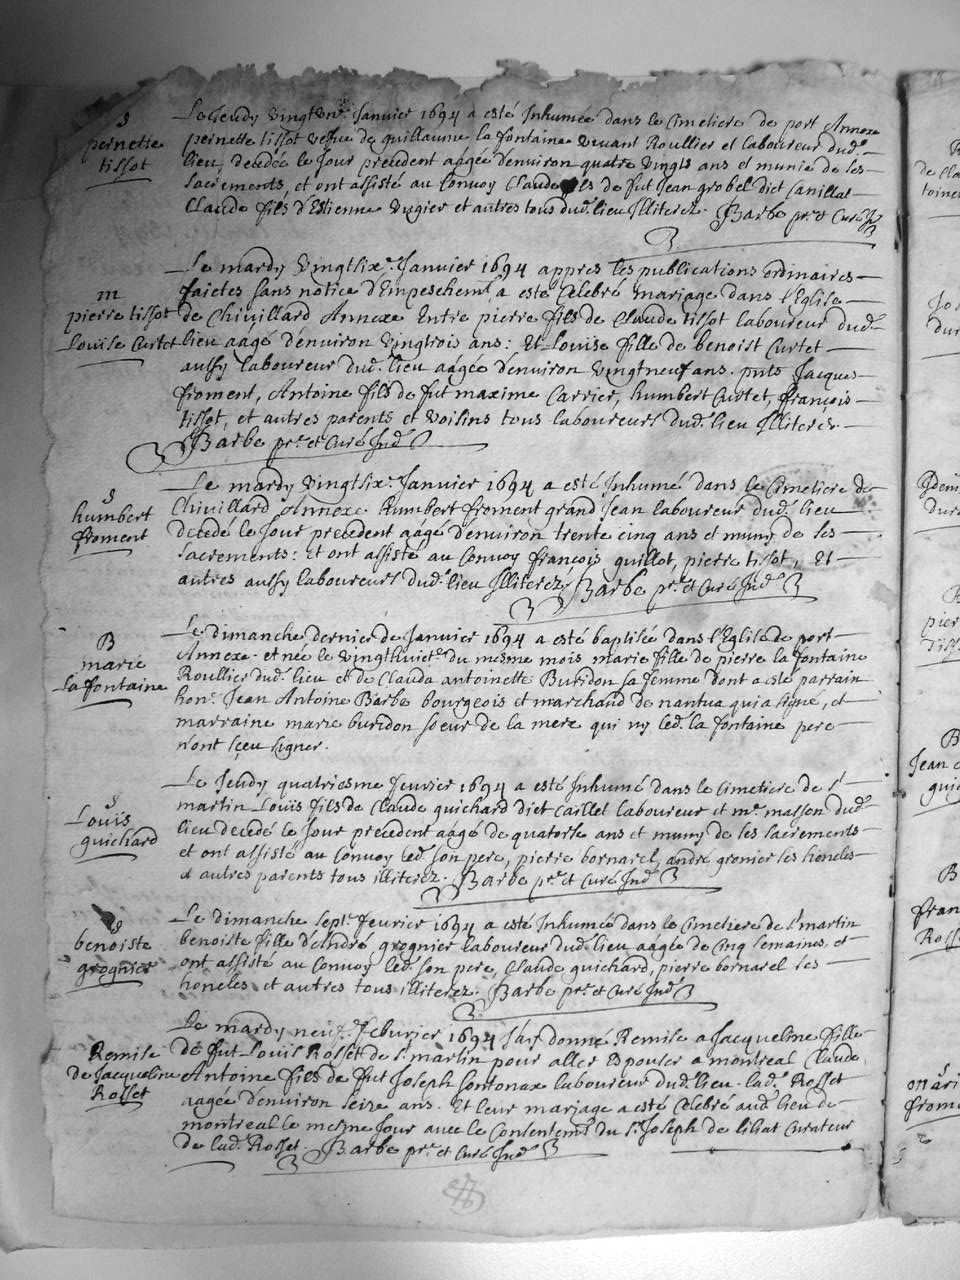 S
pernette
tissot
Le Jeudy vingt un.e Janvier 1694 a esté Inhumée dans le Cimetiere de port Annexe
pernette tissot vefve de guillaume la fontaine vivant Roullier et laboureur dud.
lieu, decedée le Jour precedent aagée d'environ quatre vingts ans et munie de ses
sacrements, et ont assisté au Convoy Claude fils de fut Jean grobel dict Canillat
Claude fils d'Estienne Vugier et autres tous dud. lieu Illiterez. Barbe pr. et Curé
m
pierre tissot
Louise Curtet
Le mardy vingtsix.e Janvier 1694 appres les publications ordinaires
faictes sans notice d'Empeschemt a esté Celebré mariage dans l'Eglise
de Chivillard Annexe Entre pierre fils de Claude tissot laboureur dud.
lieu aagé d'environ vingtrois ans : Et Louise fille de benoist Curtet
aussy laboureur dud. lieu aagée d'environ vingtneuf ans. pnts Jacques
froment, Antoine fils de fut maxime Carrier, humbert Curtet, françois
tissot, et autres parents et voisins tous laboureurs dud. lieu Illiterez
Barbe pr. et Curé Ind.
S
humbert
froment
Le mardy vingtsix.e Janvier 1694 a esté Inhumé dans le Cimetiere de
Chivillard Annexe humbert froment grand Jean laboureur dud. lieu
decedé le Jour precedent aagé d'environ trente cinq ans et muny de ses
sacrements : et ont assisté au Convoy françois guillot, pierre tissot, Et
autres aussy laboureurs dud. lieu Illiterez Barbe pr. et Curé Ind.
B
marie
la fontaine
Le dimanche dernier de Janvier 1694 a esté baptisée dans l'Eglise de port
Annexe et née le vingthuict.e du mesme mois marie fille de pierre la fontaine
Roullier dud. lieu et de Clauda antoinette Buridon sa femme dont a esté parrain
hon. Jean Antoine Barbe bourgeois et marchand de nantua qui a signé, et
marraine marie buridon soeur de la mere qui ny led. la fontaine pere
n'ont sçeu signer.
S
Louis
guichard
Le Jeudy quatriesme fevrier 1694 a esté Inhumé dans le Cimetiere de st
martin Louis fils de Claude guichard dict Caillet laboureur et m.e masson dud.
lieu decedé le Jour precedent aagé de quatorse ans et muny de ses sacrements
et ont assisté au Convoy led. son pere, pierre bornarel, andré gronier les honeles
et autres parents tous illiterez. Barbe pr. et Curé Ind.
S
benoiste
grognier
Le dimanche sept.e fevrier 1694 a esté Inhumée dans le Cimetiere de st martin
benoiste fille d'André grognier laboureur dud. lieu aagée de Cinq semaines, et
ont assisté au Convoy led. son pere, Claude guichard, pierre bornarel les
honeles et autres tous illiterez. Barbe pr. et Curé Ind.
Remise
de Jacqueline
Rosset
Le mardy neuf.e febvrier 1694 J'ay donné Remise a Jacqueline fille
de fut Louis Rosset de st martin pour aller Espouser a montreal Claude
Antoine fils de fut Joseph Sontonax laboureur dud. lieu. lad. Rosset
aagée d'environ seize ans. Et leur mariage a esté Celebré aud. lieu de
montreal le mesme Jour avec le Consentemt du sr Joseph de liliat Curateur
de lad. Rosset Barbe pr. et Curé Ind.